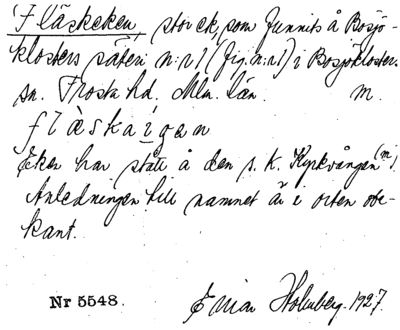 'Fläskeken', stor ek, som funnits å Bosjö-
klosters säteri n:r 1 (fig. n:r 1) i Bosjökloster.
sn. Frosta hd, Mlm. län. m.
fläskaigan
Eken har stått å den s. k. Kyrkvången (m).
Anledningen till namnet är i orten obe-
kant.
Nr 5548. Einar Holmberg. 1927.